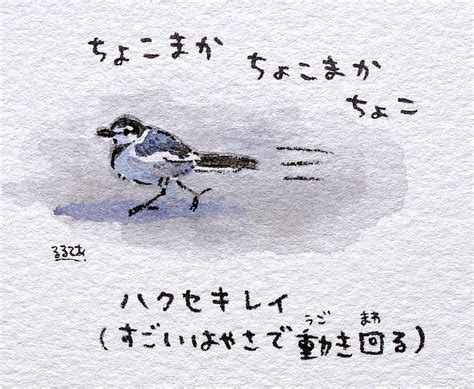 ちょこまか
ちょこまか
ちょこ
るるてあ
ハクセキレイ
(すごいはやさで動き回る)
うご
まわ